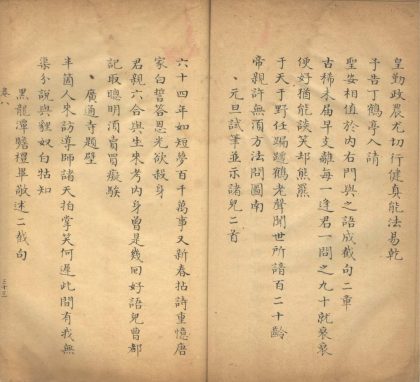 皇勤政農尤切行健真能法易乾
予告丁鶴亭入請
聖安相值於內右門與之語成截句二章
古稀未屆早支離每一逢君一問之九十就衰衰
便好猶能談笑却熊羆
于天于野任蹋躚鶴老聲聞世所諳百二十齡
帝親許無須方法問圖南
、元旦試筆並示諸兒二首
六十四年如短夢百千萬事又新春拈詩重憶唐
家白誓答恩光欲救身
君親六合與生來考內身曾是幾回好語兒曹都
記取聰明須賣買癡騃
、廣通寺題壁
半箇人來訪導師諸天拍掌笑何遲此間有我無
渠分說與貍奴白牯知
黑龍潭贍禮畢敬述二截句
卷八
三十三